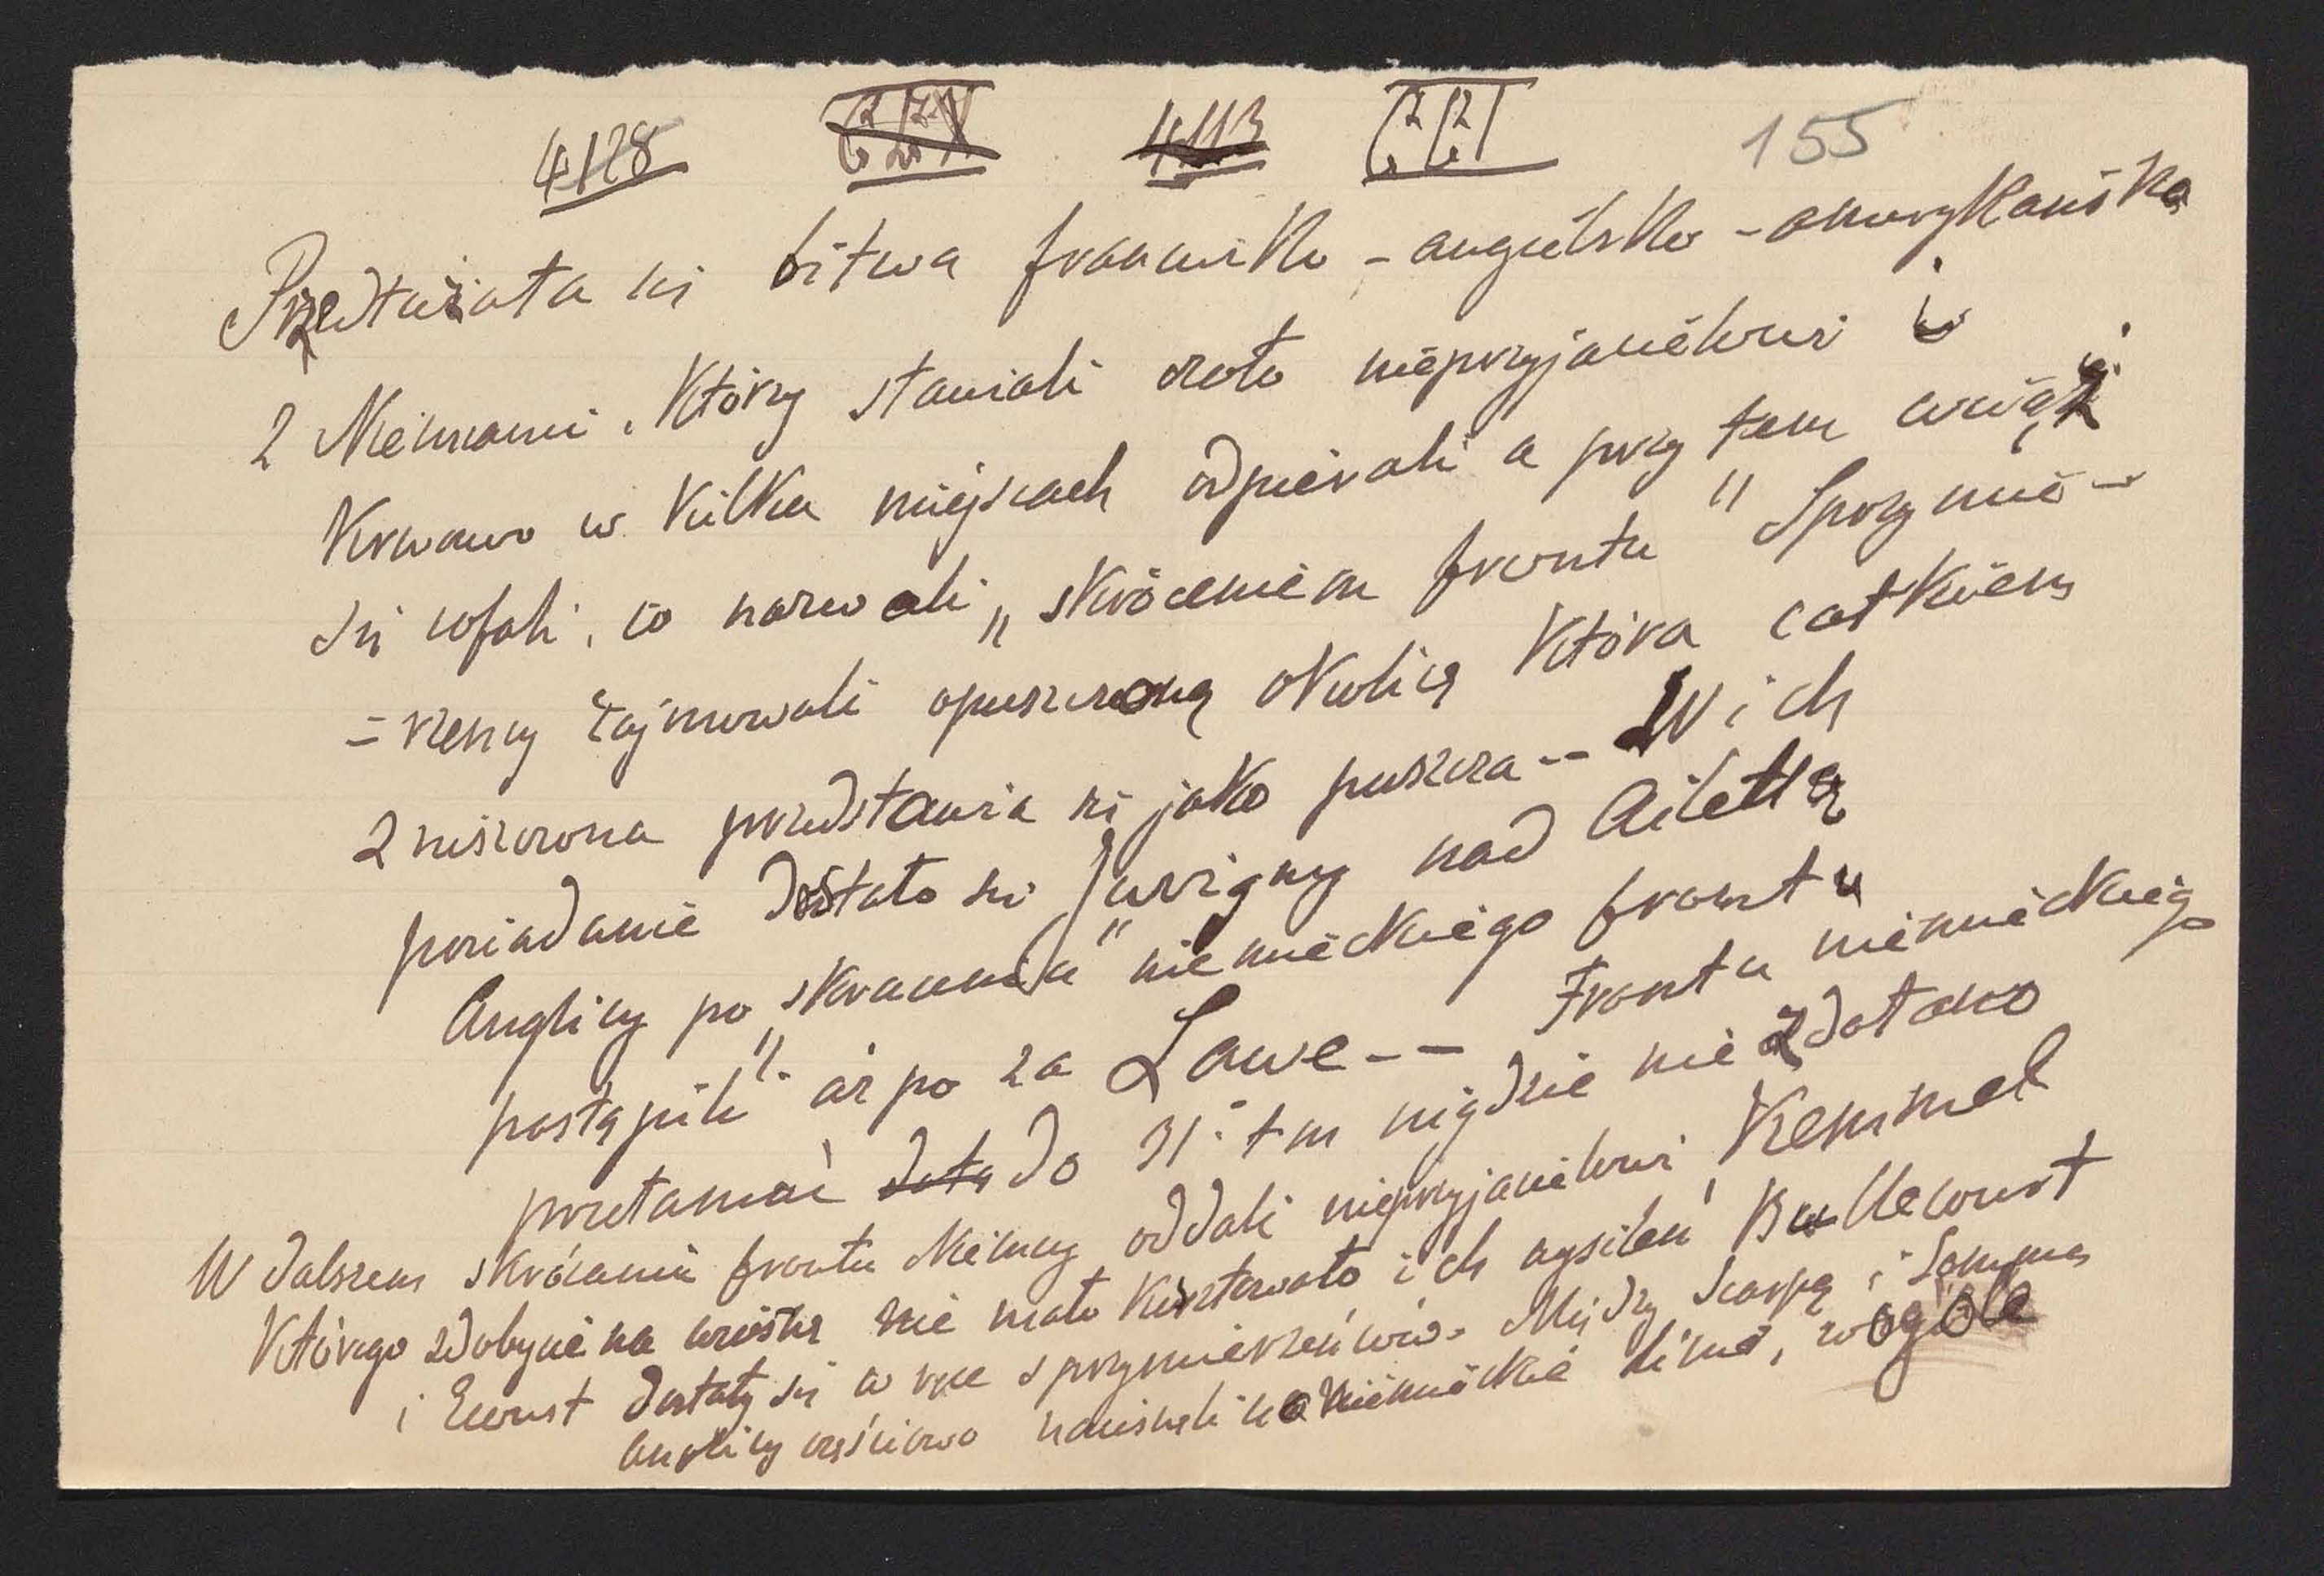 4128 4113 155
Przedłużała się bitwa francusko-angielsko-amerykańska
z Niemcami, którzy stawiali czoło nieprzyjacielowi i
krwawo w kilku miejscach odpierali a przy tem wciąż
się cofali, co nazwali „skróceniem frontu" Sprzymie-
=rzeńcy zajmowali opuszczoną okolicę która całkiem
zniszczona przedstawia się jako puszcza -- W ich
posiadanie dostało się Juvigny nad Ailettą
Anglicy po „skracaniu" niemieckiego frontu
postąpili aż po za Lawe -- Frontu niemieckiego
przełamać do 31. tm nigdzie nie zdołano
W dalszem skracaniu frontu Niemcy oddali nieprzyjacielowi Kemmel
którego zdobycie na wiosnę nie mało kosztowało ich wysileń Bullecourt
i Ecoust dostały się w ręce sprzymierzeńców. Między Scarpą i Sommą
Anglicy częściowo naciskali na niemieckie linie, wogóle